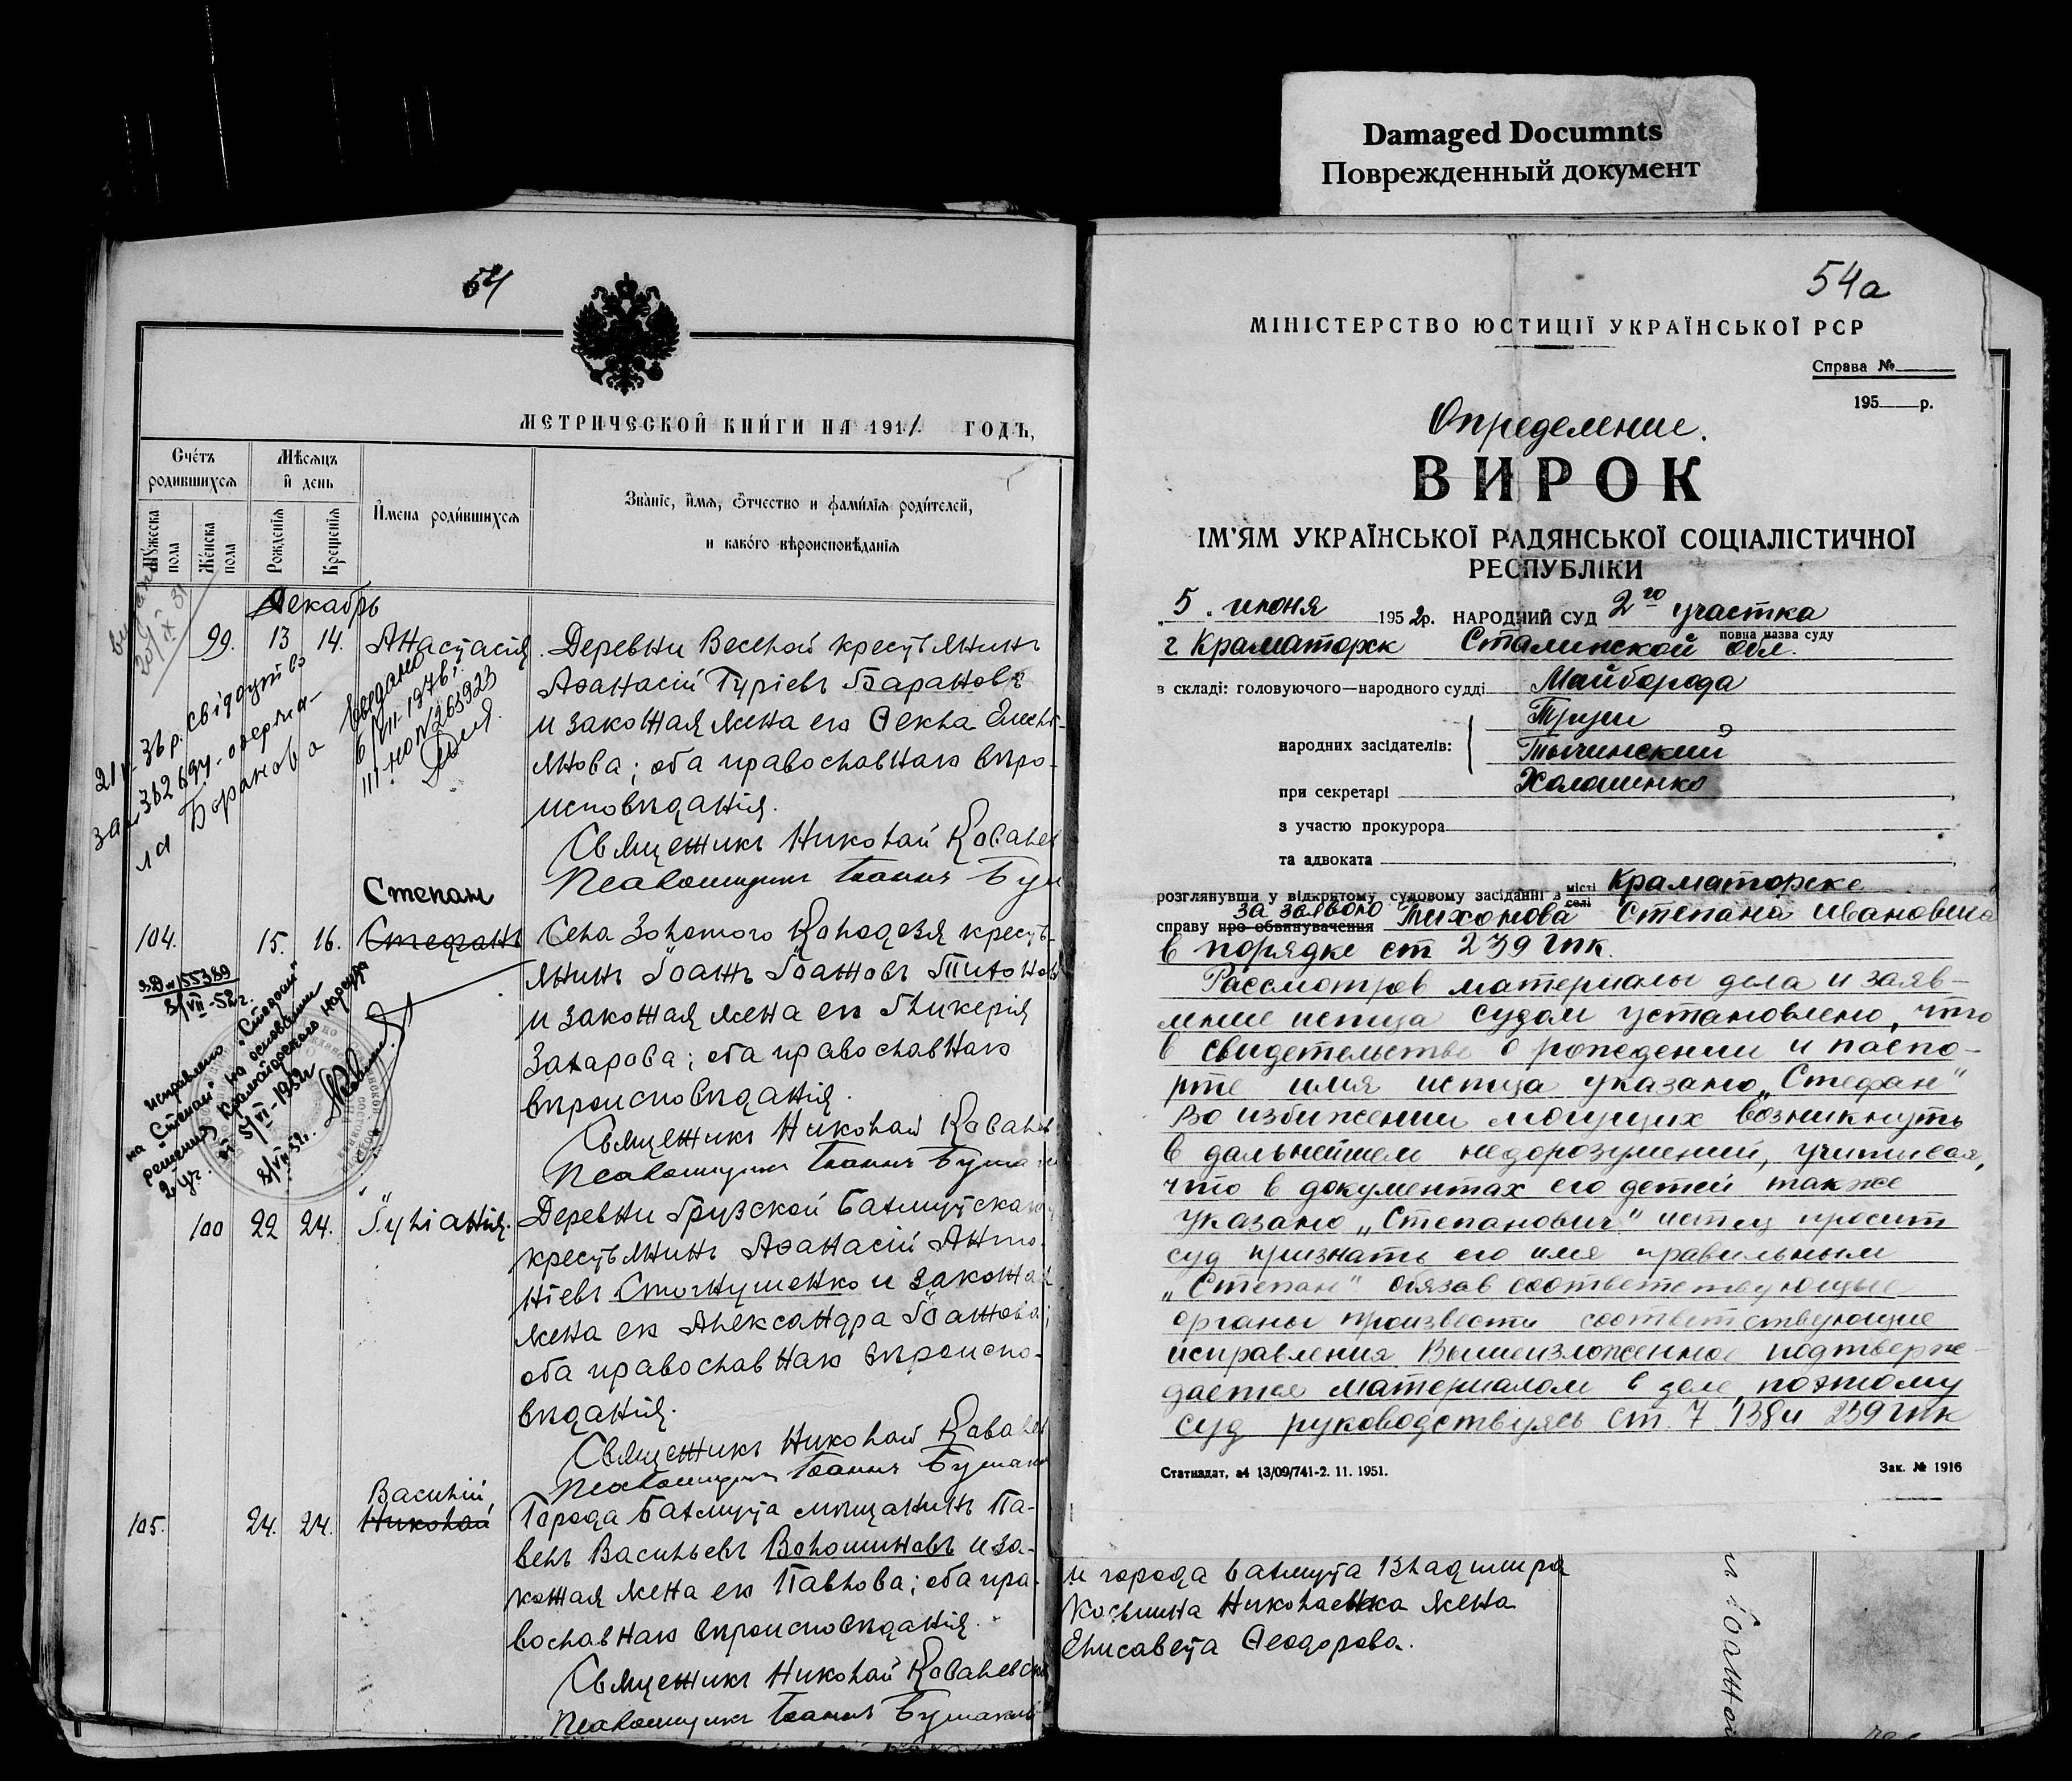 Damaged Documnts
Поврежденный документ
54
МЕТРИЧЕСКОЙ КНИГИ НА 1911. ГОДЪ,
Счетъ родившихся
Мѣсяцъ и день
Имена родившихся
Званіе, имя, отчество и фамилія родителей,
и какого вѣроисповѣданія
Мужеска пола
Женска пола
Рожденія
Крещенія
Декабрь
99. 13 14. Анастасія. Деревни Веселой крестьянинъ
Аѳанасій Гуріевъ Барановъ
и законная жена его Ѳекла
; оба православнаго вѣро-
исповѣданія.
Священникъ Николай
Псаломщикъ Іоаннъ
свідоцтво
Баранова
видано
6/VII-1976
III-НО №263923
Степан
104. 15. 16. Стефанъ Села Золотого Колодезя кресть-
янинъ Іоаннъ Іоанновъ Тихоновъ
и законная жена его Гликерія
Захарова; оба православнаго
вѣроисповѣданія.
Священникъ Николай
Псаломщикъ Іоаннъ
№155389
8/VII-52г.
исправлено "Стефан"
на "Степан" на основании
решения Краматорского нарсуда
2 уч. от 5/VI-1952г
8/VII 52г.
100 22 24. Іуліанія. Деревни Грузской Бахмутскаго у
крестьянинъ Аѳанасій Анто-
ніевъ и законная
жена его Александра Іоаннова;
оба православнаго вѣроиспо-
вѣданія.
Священникъ Николай
Псаломщикъ Іоаннъ
Василій,
105. 24. 24. Николай Города Бахмута мѣщанинъ Па-
велъ Васильевъ Волошиновъ и за-
конная жена его Павлова; оба пра-
вославнаго вѣроисповѣданія.
Священникъ Николай
Псаломщикъ Іоаннъ
54а
МІНІСТЕРСТВО ЮСТИЦІЇ УКРАЇНСЬКОЇ РСР
Справа №
195 р.
Определение.
ВИРОК
ІМ'ЯМ УКРАЇНСЬКОЇ РАДЯНСЬКОЇ СОЦІАЛІСТИЧНОЇ
РЕСПУБЛІКИ
5. июня 1952р. НАРОДНИЙ СУД 2го участка
повна назва суду
г Краматорск Сталинской обл.
в складі: головуючого—народного судді Майборода
народних засідателів:
Тычинский
при секретарі Холошенко
з участю прокурора
та адвоката
розглянувши у відкритому судовому засіданні в місті селі Краматорске
справу про обвинувачення за заявою Тихонова Степана Ивановича
в порядке ст 239 гпк.
Рассмотрев материалы дела и заяв-
ление истца судом установлено, что
в свидетельстве о рождении и паспо-
рте имя истца указано „Стефан"
Во избижении могущих возникнуть
в дальнейшем недорозумений, учитывая,
что в документах его детей также
указано „Степанович" истец просит
суд признать его имя правильным
„Степан" обязав соответствующие
органы произвести соответствующие
исправления. Вышеизложенное подтверж-
дается материалом в деле, поэтому
суд руководствуясь ст. 7 138 и 239 гпк
Статиздат, з4 13/09/741-2. 11. 1951.
Зак. № 1916
и города Бахмута Владимира
Косьмина Николаенка жена
Елисавета Ѳеодорова.